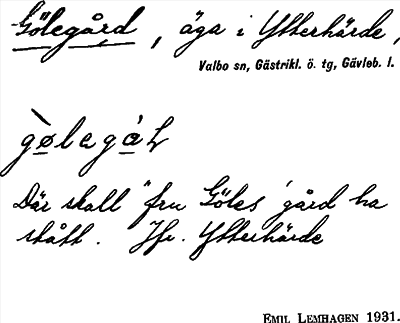 Gölegård, äga i Ytterhärde,
Valbo sn, Gästrikl. ö. tg, Gävleb. l.
gølegaƚ
Där skall "fru Göles' gård ha
stått. Jfr. Ytterhärde
EMIL LEMHAGEN 1931.